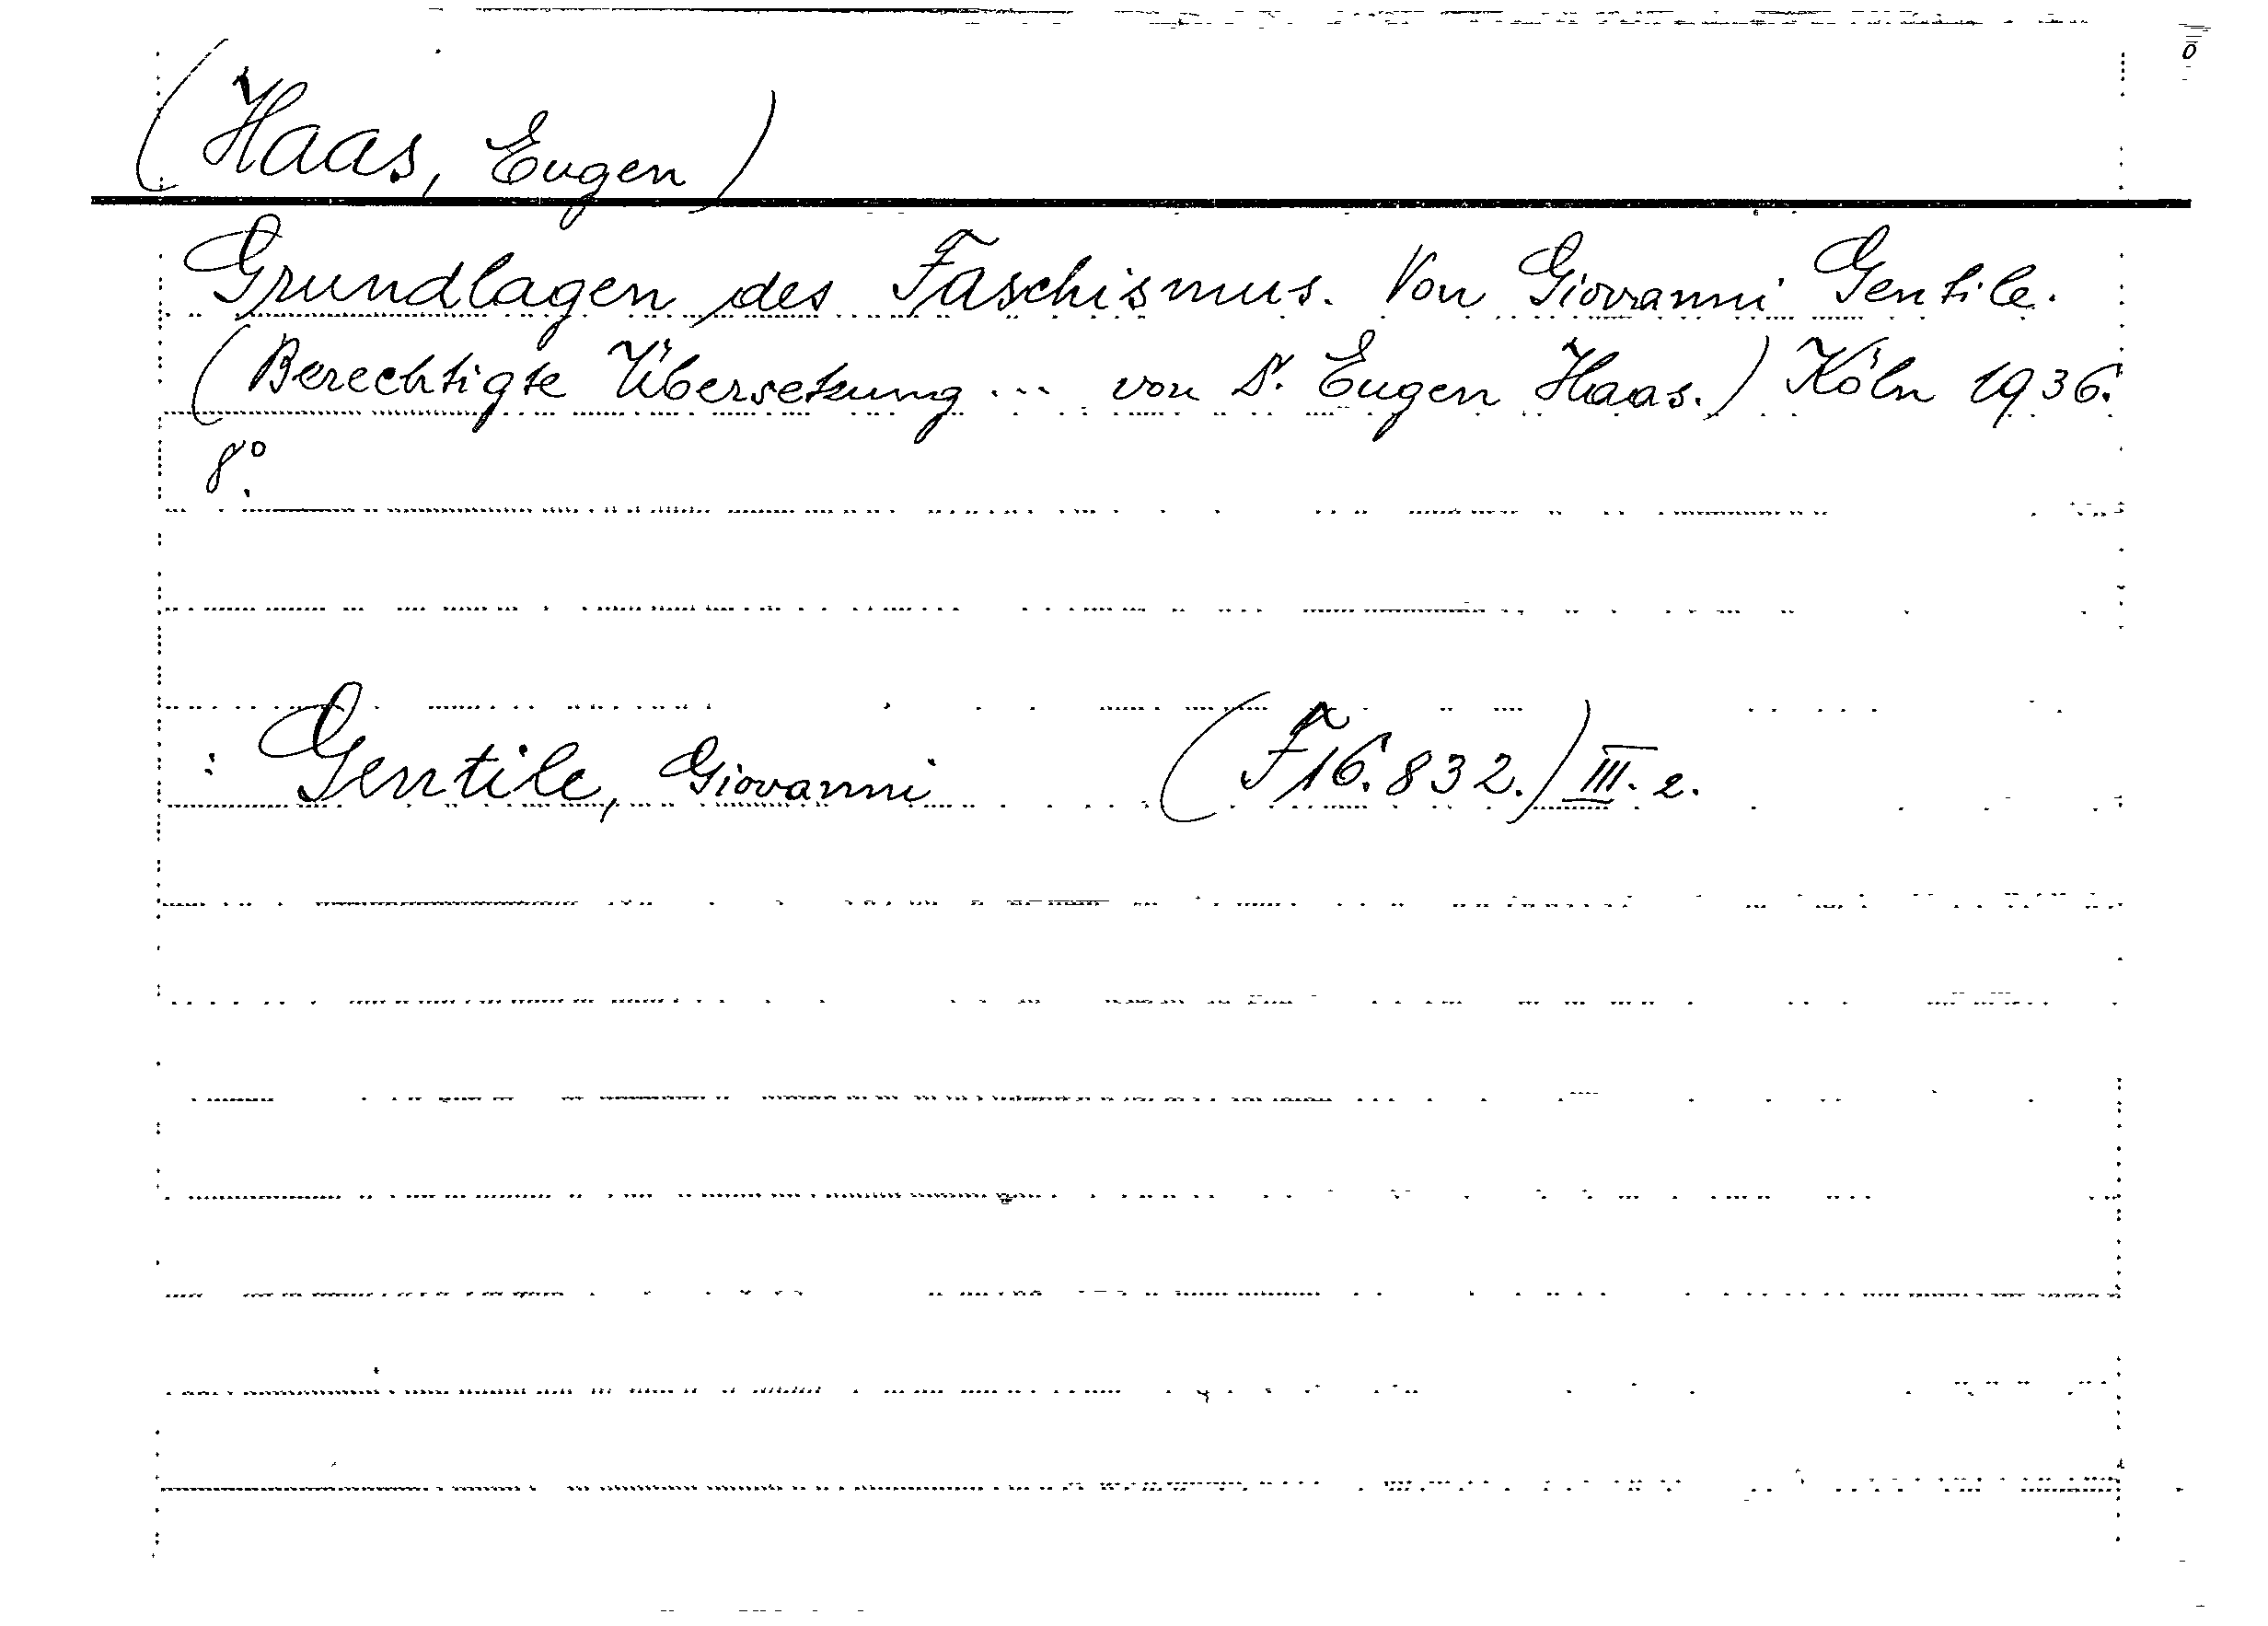 (Haas, Eugen)
Grundlagen des Faschismus. Von Giovanni Gentile.
(Berechtigte Übersetzung ... von D. Eugen Haas.) Köln 1936.
8°.
: Gentile, Giovanni (F 16.832.) III. 2.